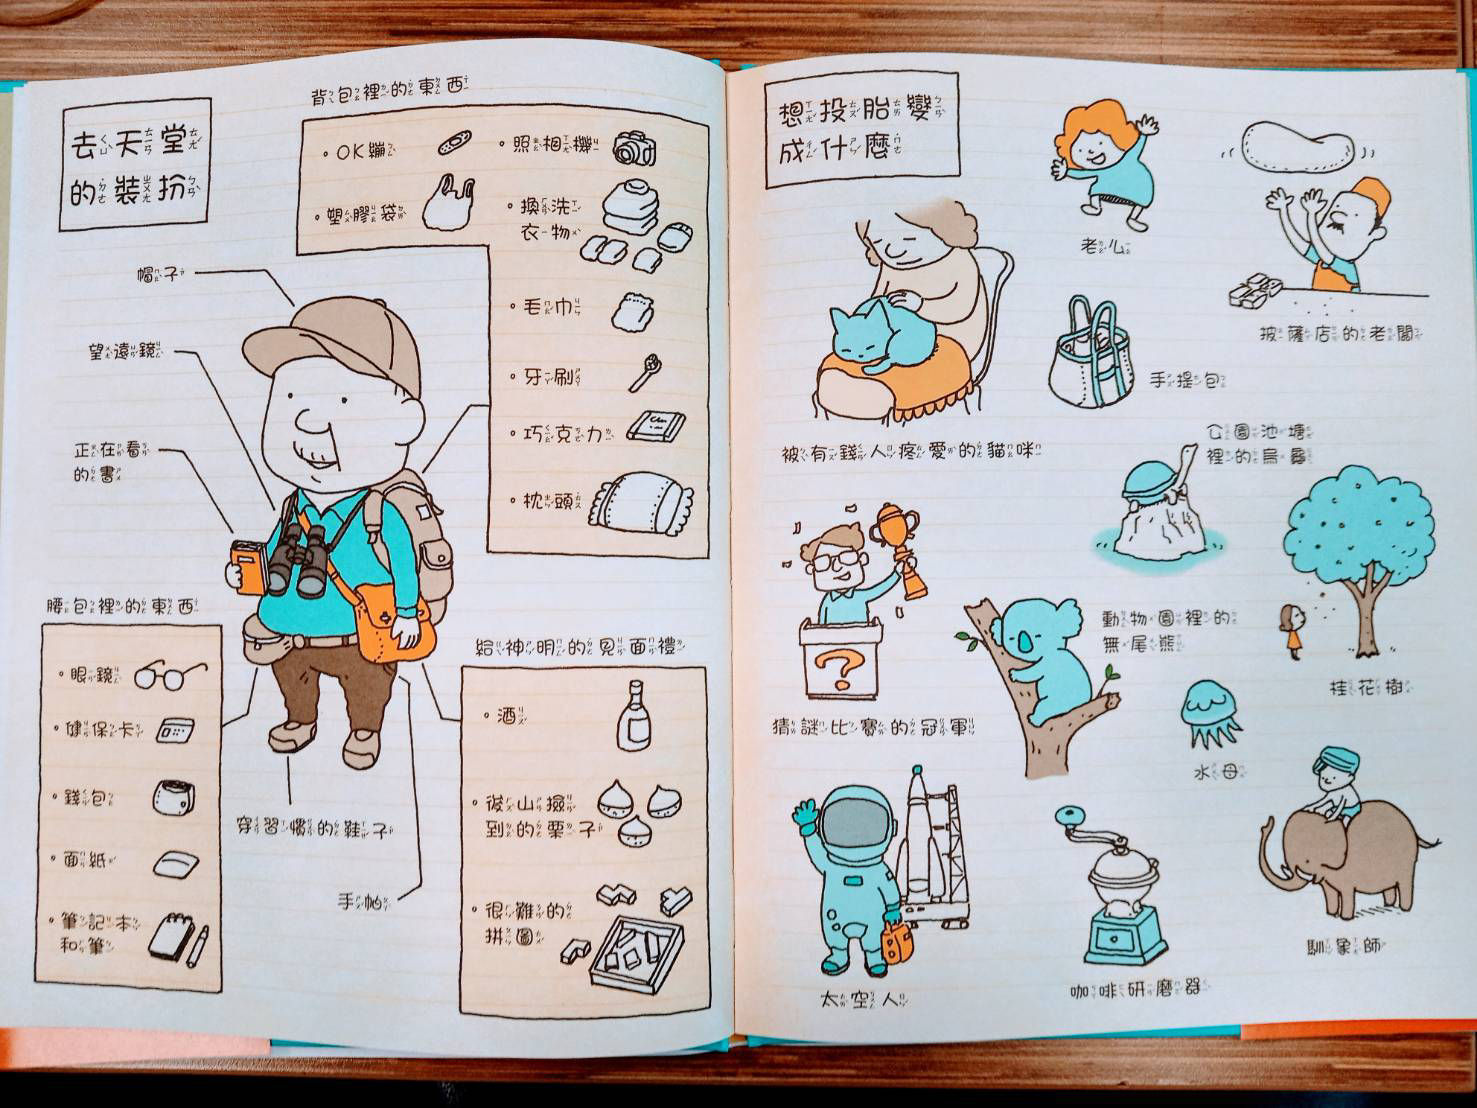 去天堂
的裝扮
背包裡的東西
OK繃
塑膠袋
照相機
換洗
衣物
毛巾
牙刷
巧克力
枕頭
帽子
望遠鏡
正在看
的書
腰包裡的東西
眼鏡
健保卡
錢包
面紙
筆記本
和筆
穿習慣的鞋子
手帕
給神明的見面禮
酒
後山撿
到的栗子
很難的
拼圖
想投胎變
成什麼
老心
披薩店的老闆
手提包
被有錢人疼愛的貓咪
公園池塘
裡的烏龜
猜謎比賽的冠軍
動物園裡的
無尾熊
桂花樹
水母
太空人
咖啡研磨器
馴象師